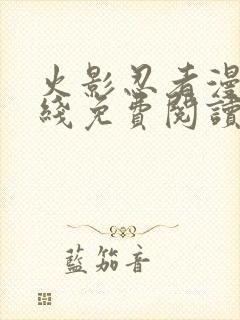 火影忍者漫
綫免費閱讀
藍笳音